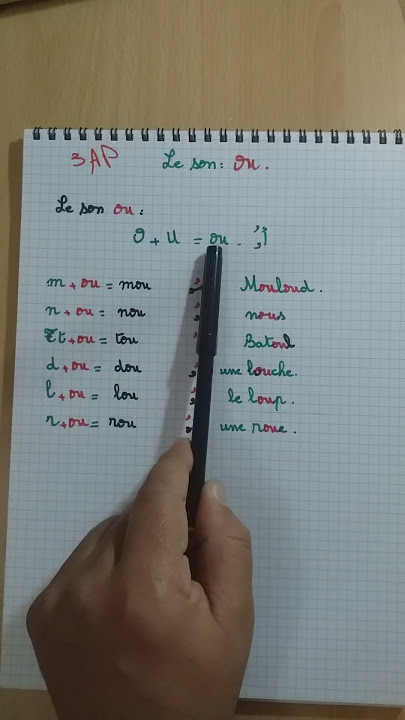 3AP Le son: ou.
Le son ou:
O + U = ou. أُو
m + ou = mou Mouloud.
n + ou = nou nous
t + ou = tou Batoul
d + ou = dou une louche.
l + ou = lou le loup.
r + ou = rou une roue.